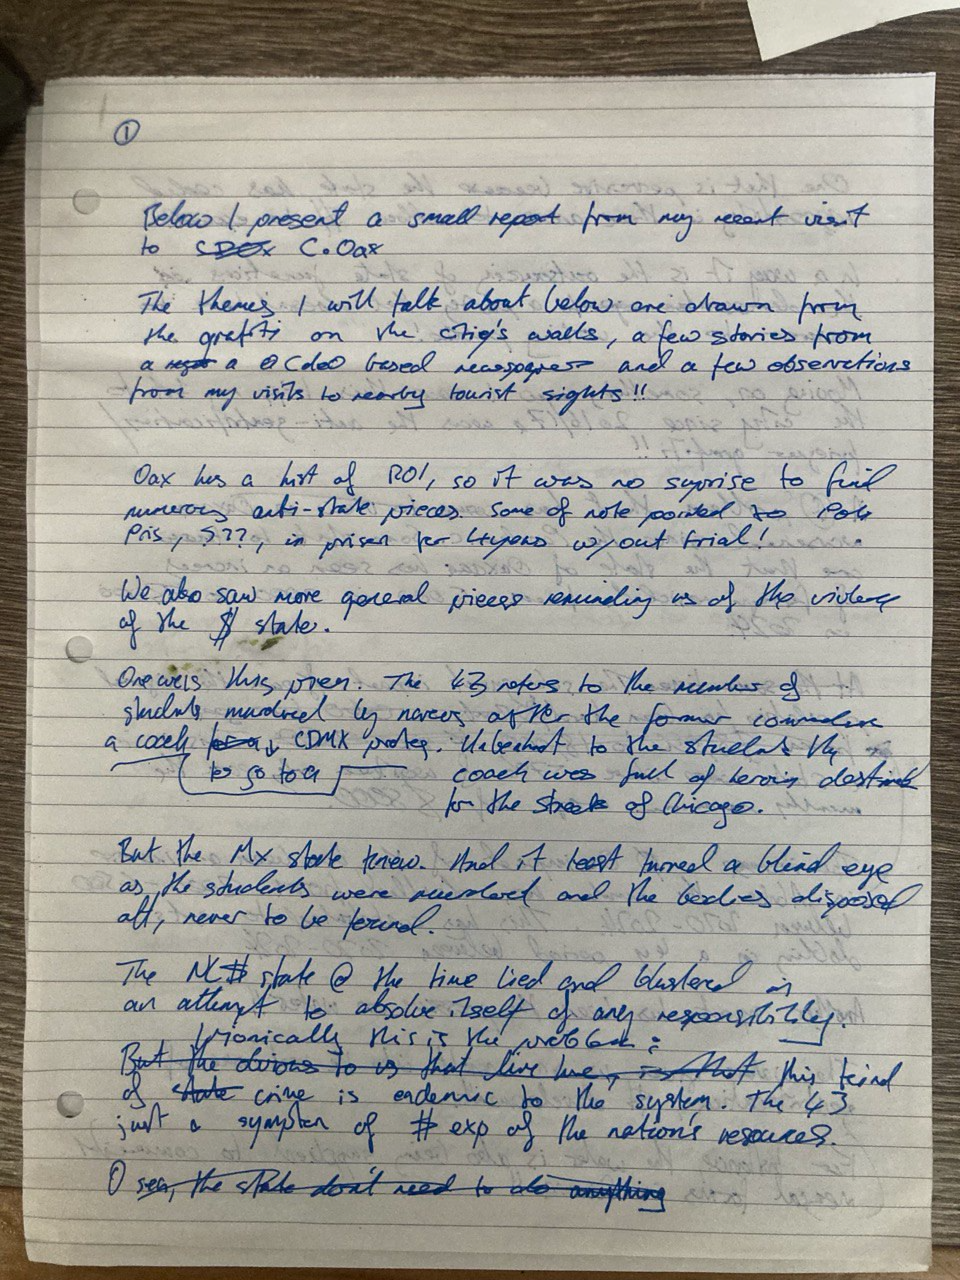 ①
Below I present a small report from my recent visit
to CDOX C.Oax
The themes I will talk about below are drawn from
the grafiti on the citiy's walls, a few stories from
a a based newspaper and a few observations
from my visits to nearby tourist sights!!
Oax has a hist of ROI, so it was no suprise to find
numerous anti-state pieces. Some of note pointed to Pol
Pris, 5???, in prison for w/out trial!
We also saw more general pieces reminding us of the violence
of the $ state.
One was this given. The 43 refers to the number of
students murdred by narcos after the former
a coach CDMX protes. Unbeknot to the students the
to go to a coach was full of heroin
for the streets of Chicago.
But the Mx state knew. And it least turned a blind eye
as the students were murdered and the bodies disposed
off, never to be found.
The state @ the time lied and blustered in
an attempt to absolve itself of any responsibility.
Ironically this is the problem:
But the to us that live here, is that this kind
of state crime is endemic to the system. The 43
just a sympton of # exp of the nation's resources.
O see, the state don't need to do anything